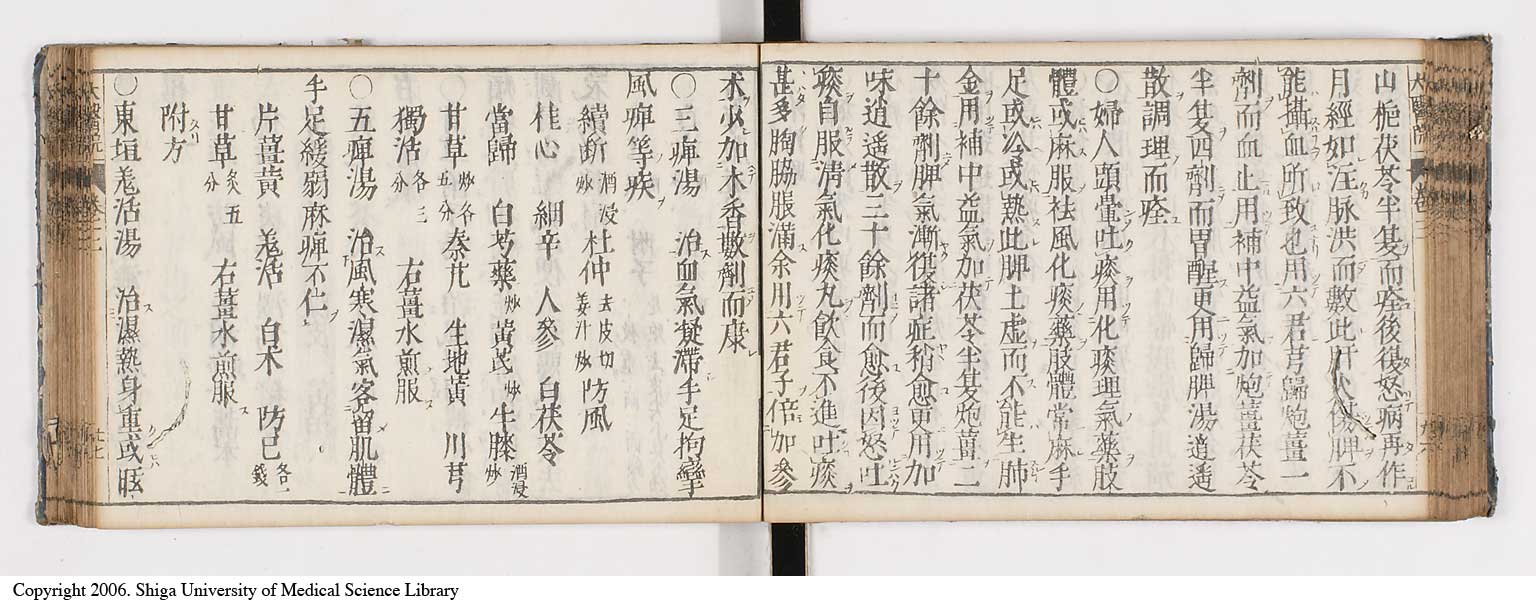 山梔茯苓半夏而痊後復怒病再作
月經如注脉洪而數此肝火傷脾不
能攝血所致也用六君芎歸炮薑一
劑而血止用補中益氣加炮薑茯苓
半夏四劑而胃醒更用歸脾湯逍遙
散調理而痊
〇婦人頭暈吐痰用化痰理氣藥肢
體或麻服祛風化痰藥肢體常麻手
足或冷或熱此脾土虚而不能生肺
金用補中益氣加茯苓半夏炮薑二
十餘劑脾氣漸復諸症稍愈更用加
味逍遙散三十餘劑而愈後因怒吐
痰自服清氣化痰丸飲食不進吐痰
甚多胸脇脹滿余用六君子倍加參
朮少加木香數劑而康
〇三痺湯 治血氣凝滯手足拘攣
風痺等疾
續斷 杜仲 去皮切姜汁炒 防風
桂心 細辛 人參 白茯苓
當歸 白芍藥 炒 黄芪 炒 牛膝 酒浸炒
甘草 炒各五分 秦艽 生地黄 川芎
獨活 各三分 右薑水煎服
〇五痺湯 治風寒濕氣客留肌體
手足緩弱麻痺不仁
片薑黄 羗活 白朮 防己 各一錢
甘草 炙五分 右薑水煎服
附方
〇東垣羗活湯 治濕熱身重或眩
Copyright 2006. Shiga University of Medical Science Library